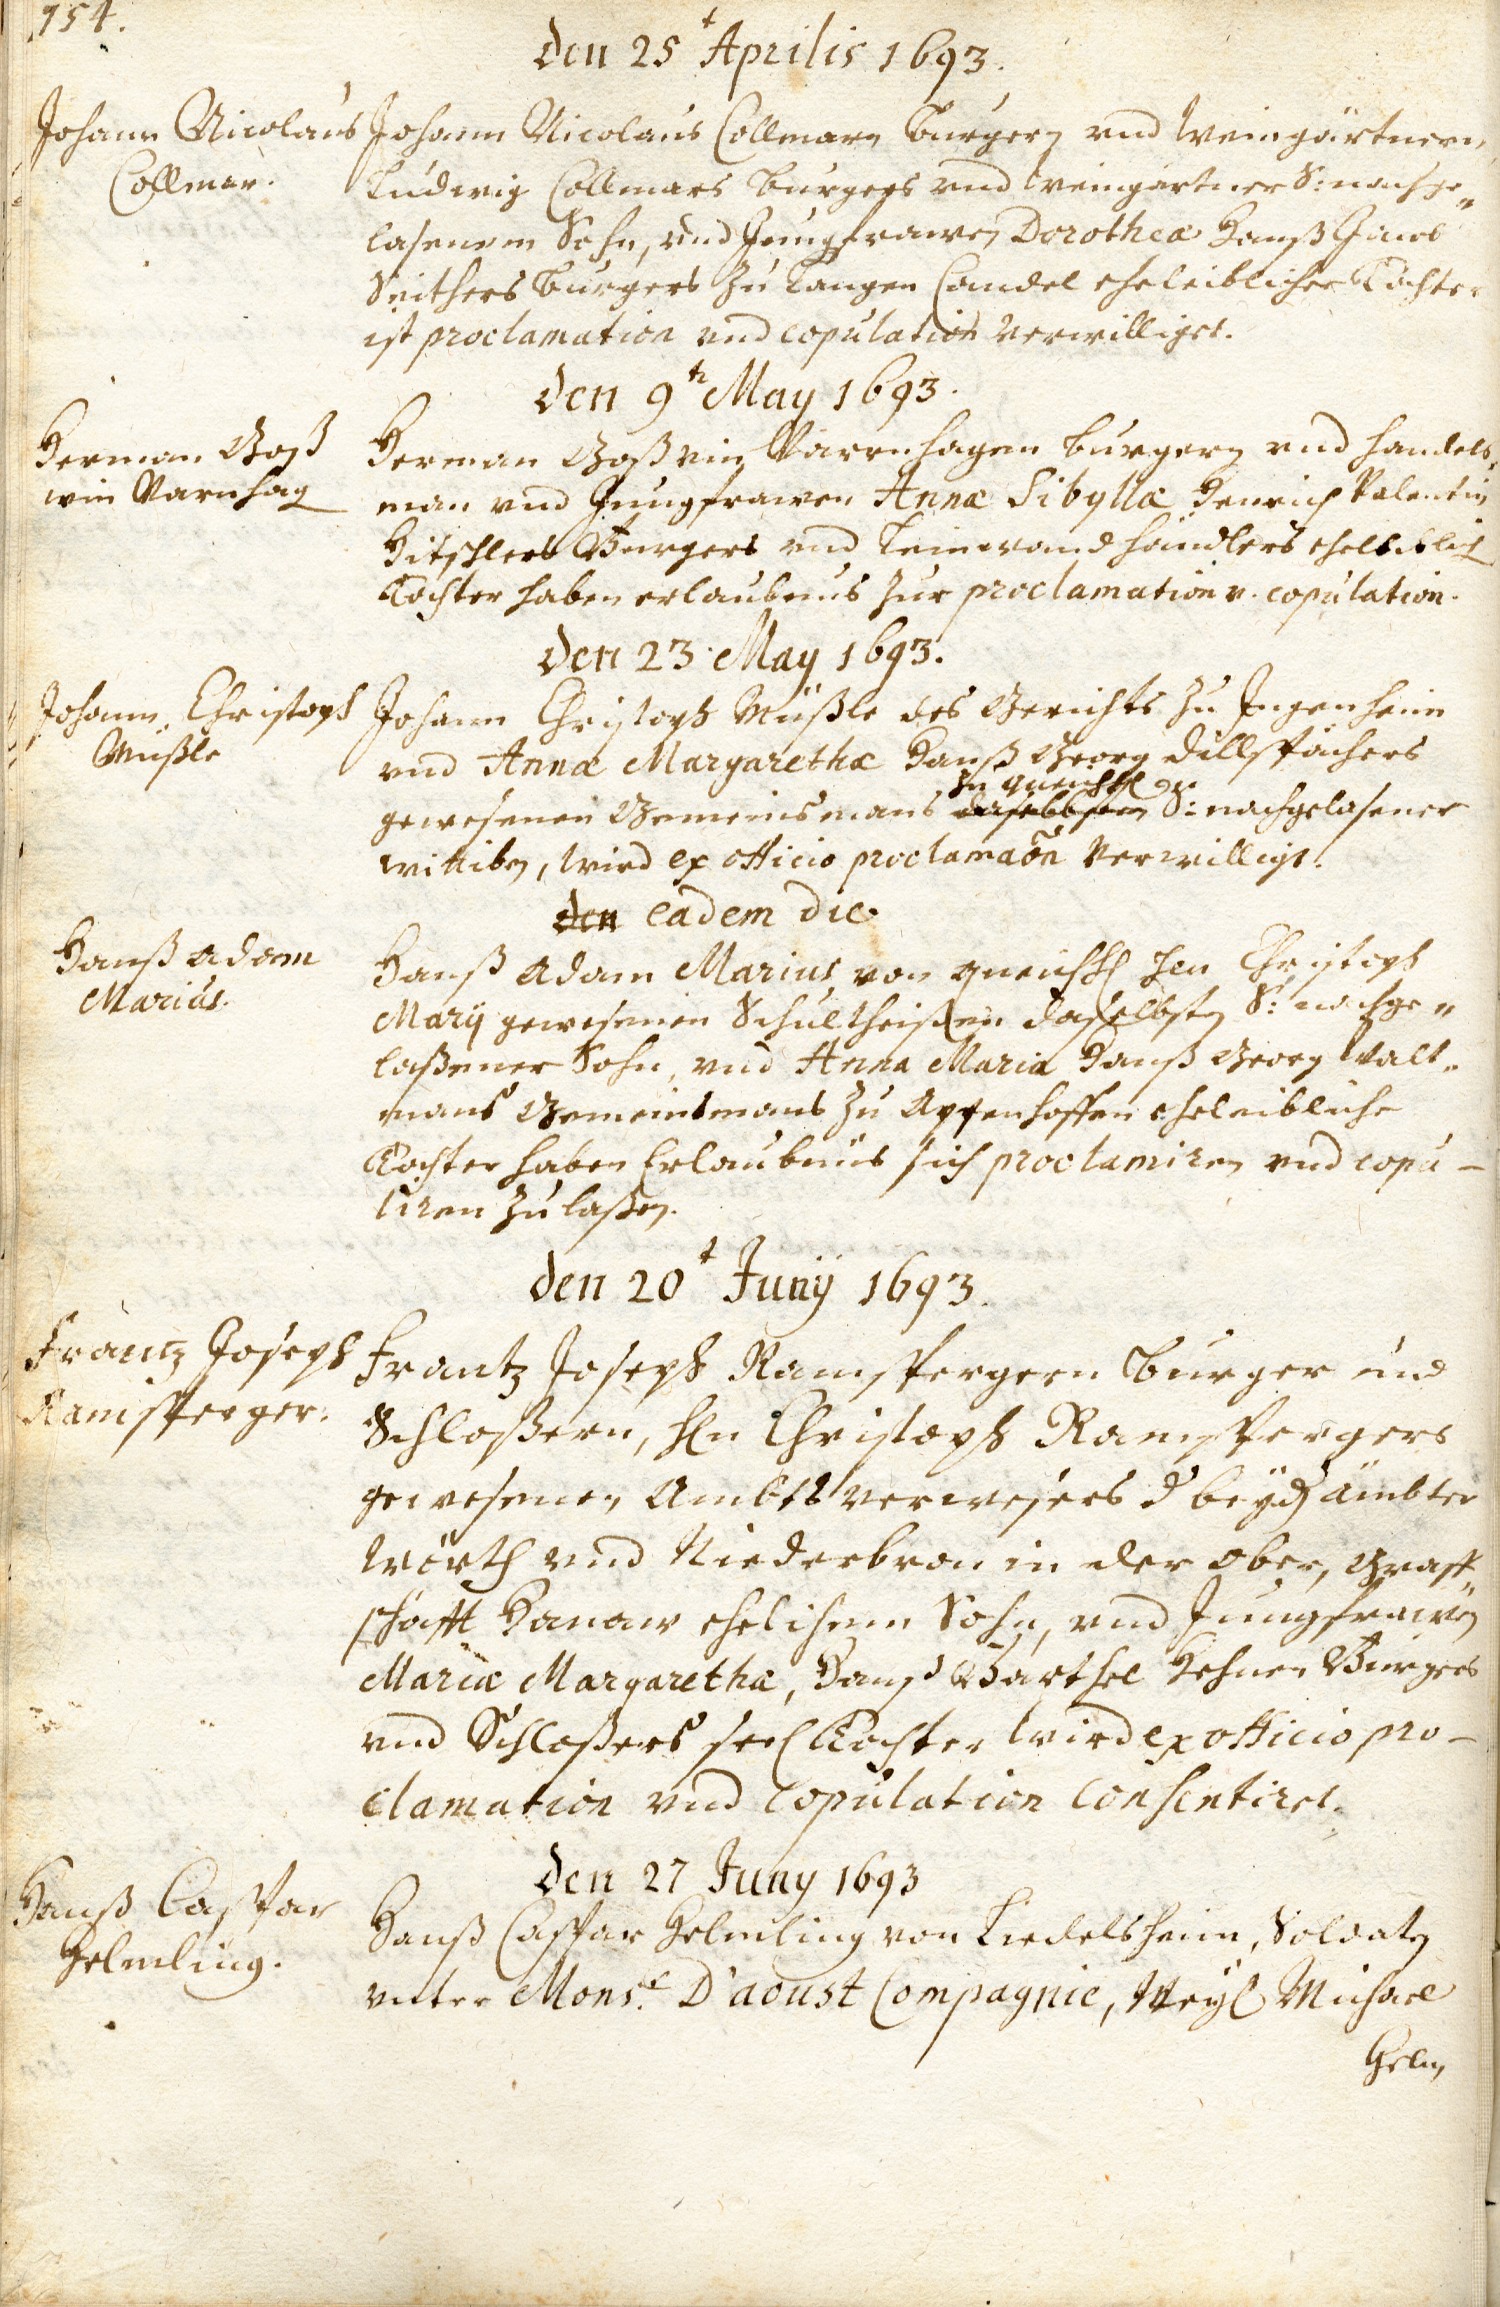 154.
den 25t Aprilis 1693.
Johann Nicolaus
Collmar.
Johann Nicolaus Collmarn Burgern vnd Weingärtnern,
Ludwig Collmars Burgers vnd Weingärtner S: nachge„
lasenem Sohn, vnd Jungfrawen Dorothea Hanß Jacob
Seithers Burgers zu Langen Candel eheleiblicher Tochter
ist proclamation vnd copulation Verwilliget.
den 9tn May 1693.
Herman Goß
win Varnhag
Herman Goßwin Varrnhagen burgern vnd handels„
man vnd Jungfrawen Anna Sibylla Henrich Valentin
Hitschlers Burgers vnd Leinwandhändlers eheleiblich
Tochter haben erlaubnus zur proclamation v. copulation.
den 23 May 1693.
Johann Christoph
Müßle
Johann Christoph Müßle des Gerichts zu Ingenheim
vnd Anna Margaretha Hanß Georg Dillspächers
zu
gewesenen Gemeinsmans daselbsten S: nachgelasener
wittiben, wird ex officio proclamaõn Verwilligt.
den eadem die
Hanß Adam
Marius.
Hanß Adam Marius von Christoph
Marÿ gewesenen Schultheißen daselbsten S: nachge„
laßener Sohn, vnd Anna Maria Hanß Georg Walt„
mans Gemeinsmans zu Appenhoffen eheleibliche
Tochter haben Erlaubnüs sich proclamiren vnd copu-
liren zu laßen.
den 20t Junÿ 1693.
Frantz Joseph
Ramsperger.
Frantz Joseph Ramspergern Burger und
Schloßern, Hn Christoph Ramspergers
gewesenen Ambtsverwesers d beyd ämbter
Wörth vnd Niederbron in der Ober, Graff„
schafft Hanaw ehelichem Sohn, vnd Jungfrawen
Maria Margaretha, Hanß Barthel Hehnen Burgers
vnd Schloßers seel Tochter wird ex officio pro-
clamation vnd copulation consentiret.
den 27 Juny 1693
Hanß Caspar
Helmling.
Hanß Caspar Helmling von Liedelsheim, Soldaten
vnter Mons.r D'aoust Compagnie, Weyl Michael
Helm,